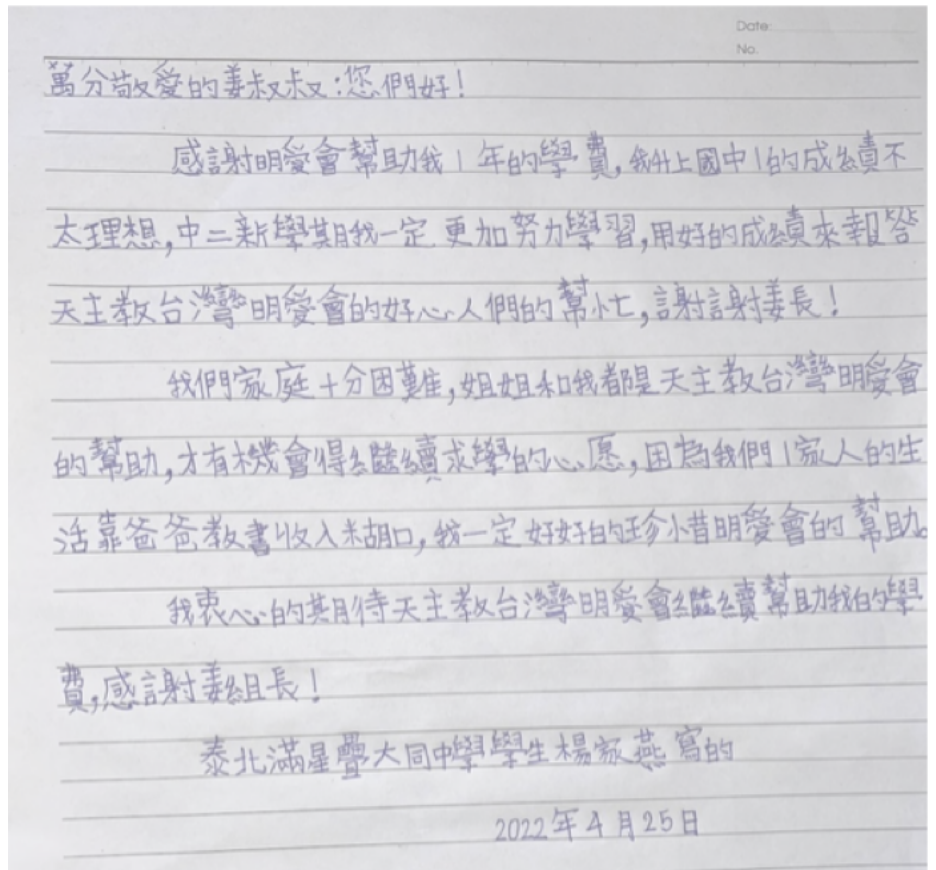 Date:
No.
萬分敬愛的姜叔叔:您們好!
感謝明愛會幫助我1年的學費,我升上國中1的成績不
太理想,中二新學期我一定更加努力學習,用好的成績來報答
天主教台灣明愛會的好心人們的幫忙,謝謝姜長!
我們家庭十分困難,姐姐和我都是天主教台灣明愛會
的幫助,才有機會得繼續求學的心愿,因為我們1家人的生
活靠爸爸教書收入糊口,我一定好好的珍惜明愛會的幫助。
我衷心的期待天主教台灣明愛會繼續幫助我的學
費,感謝姜組長!
泰北滿星疊大同中學學生楊家燕寫的
2022年4月25日